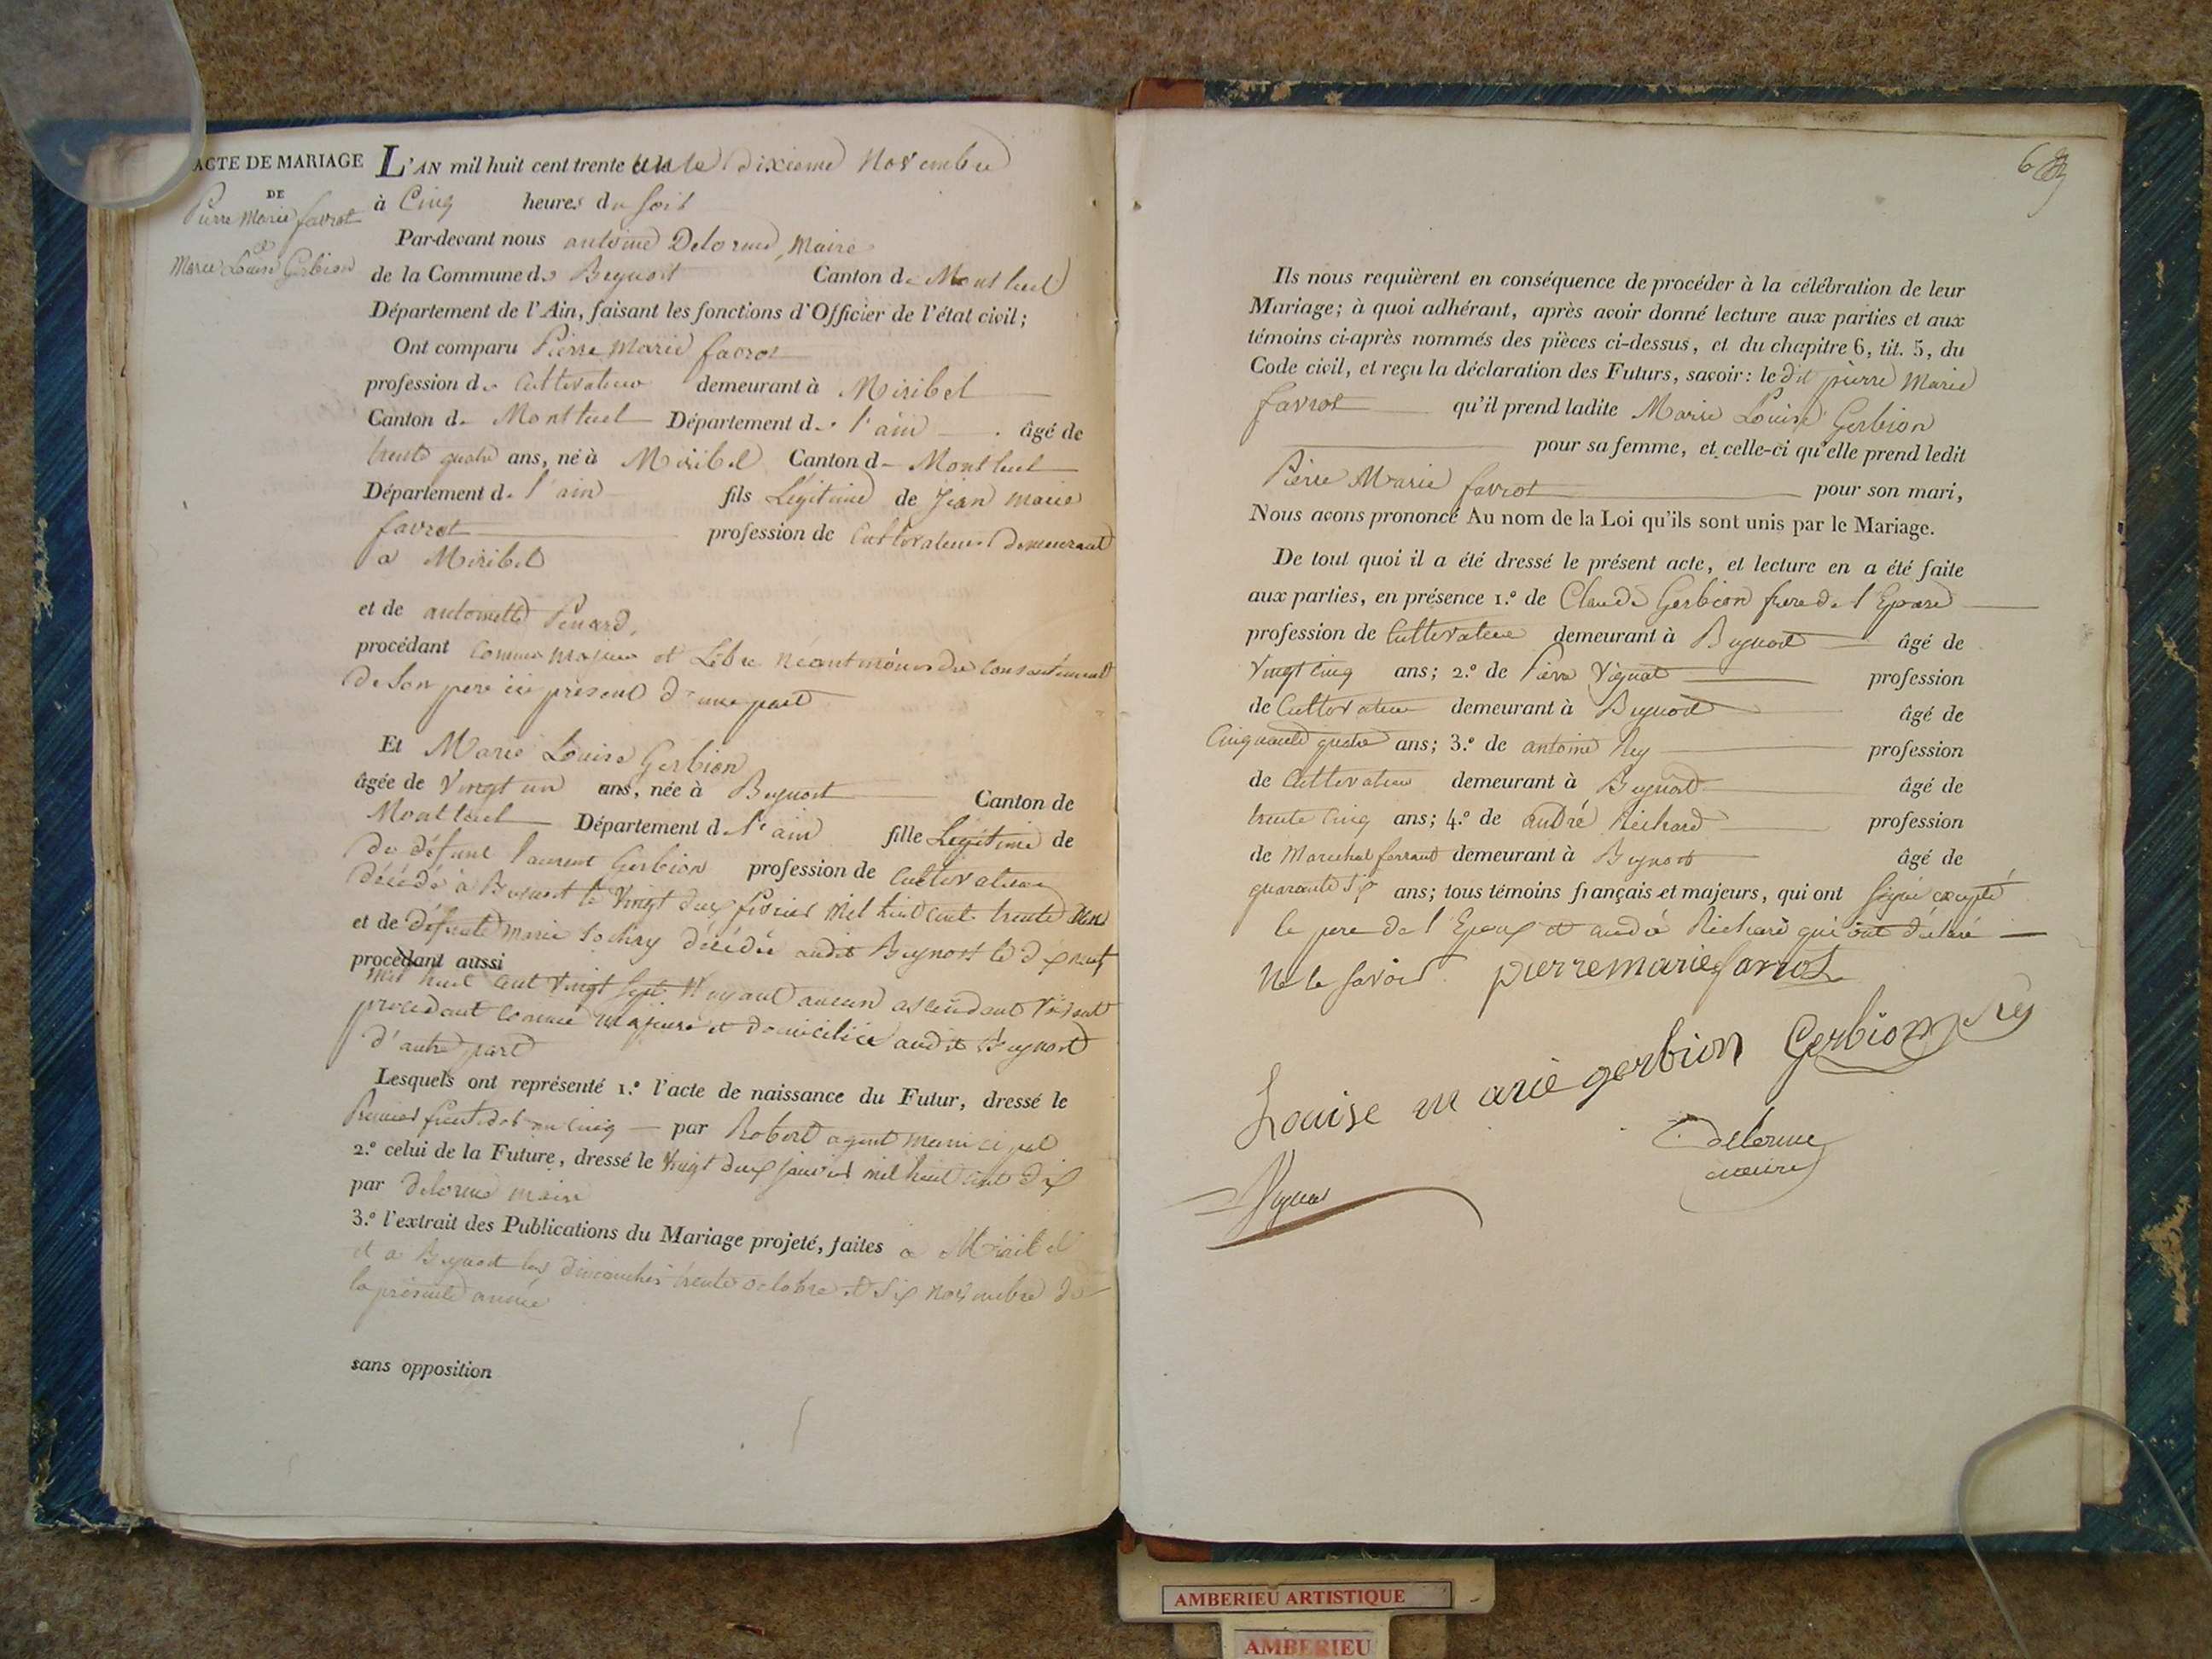 ACTE DE MARIAGE
DE
Pierre Marie favrot
et
Marie Louise Gerbion
L'AN mil huit cent trente un le Dixieme Novembre
à Cinq heures du soir
Par-devant nous antoine Delorme, Maire
de la Commune de Beynost Canton de Montluel
Département de l'Ain, faisant les fonctions d'Officier de l'état civil;
Ont comparu Pierre Marie favrot
profession de Cultivateur demeurant à Miribel
Canton de Montluel Département de l'ain âgé de
trente quatre ans, né à Miribel Canton de Montluel
Département de l'ain fils Legitime de Jean Marie
favrot profession de Cultivateur Demeurant
a Miribel
et de antoinette Penard,
procédant Comme majeur et Libre néantmoins du consentement
De Son pere ici présent D'une part
Et Marie Louise Gerbion
âgée de Vingt un ans, née à Beynost Canton de
Montluel Département de l'ain fille Legitime de
De défunt laurent Gerbion profession de Cultivateur
Décédé à Beynost le Vingt deux février Mil huit cent trente un
et de défunte Marie décédée audit Beynost le dix neuf
procèdant aussi
Mil huit cent vingt sept N'ayant aucun ascendant vivant
procedant comme majeure et domiciliée audit Beynost
d'autre part
Lesquels ont représenté 1.º l'acte de naissance du Futur, dressé le
Premier de l'an cinq par Robert agent municipal
2.º celui de la Future, dressé le Vingt deux janvier mil huit cent dix
par delorme maire
3.º l'extrait des Publications du Mariage projeté, faites a Miribel
et a Beynost les Dimanches trente octobre et Six novembre de
la présente année
sans opposition
Ils nous requièrent en conséquence de procéder à la célébration de leur
Mariage; à quoi adhérant, après avoir donné lecture aux parties et aux
témoins ci-après nommés des pièces ci-dessus, et du chapitre 6, tit. 5, du
Code civil, et reçu la déclaration des Futurs, savoir: le dit pierre Marie
favrot qu'il prend ladite Marie Louise Gerbion
pour sa femme, et celle-ci qu'elle prend ledit
Pierre Marie favrot pour son mari,
Nous avons prononcé Au nom de la Loi qu'ils sont unis par le Mariage.
De tout quoi il a été dressé le présent acte, et lecture en a été faite
aux parties, en présence 1.º de Claude Gerbion frere de l'Epouse
profession de Cultivateur demeurant à Beynost âgé de
Vingt cinq ans; 2.º de Pierre Vignat profession
de Cultivateur demeurant à Beynost âgé de
Cinquante quatre ans; 3.º de antoine Rey profession
de Cultivateur demeurant à Beynost âgé de
trente Cinq ans; 4.º de andré Richard profession
de Marechal ferrant demeurant à Beynost âgé de
quarante Six ans; tous témoins français et majeurs, qui ont signé excepté
le pere de l'Epoux et andré Richard qui ont déclaré
Ne le savoir. pierre marie favrot
Gerbion Rey
Louise marie gerbion
delorme
maire
Vignat
AMBERIEU ARTISTIQUE
AMBERIEU